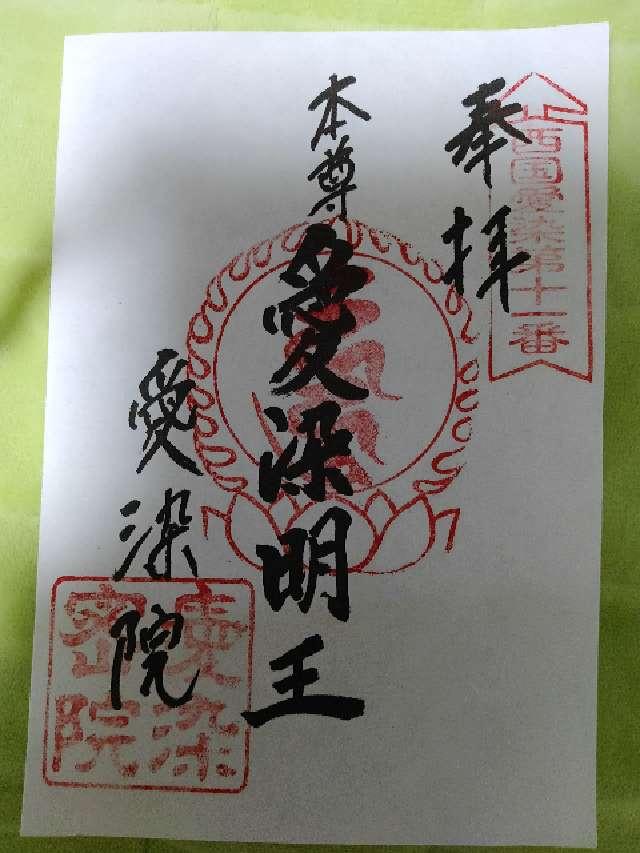 西国愛染第十一番
奉拝
本尊 愛染明王
愛染院
愛染
密院